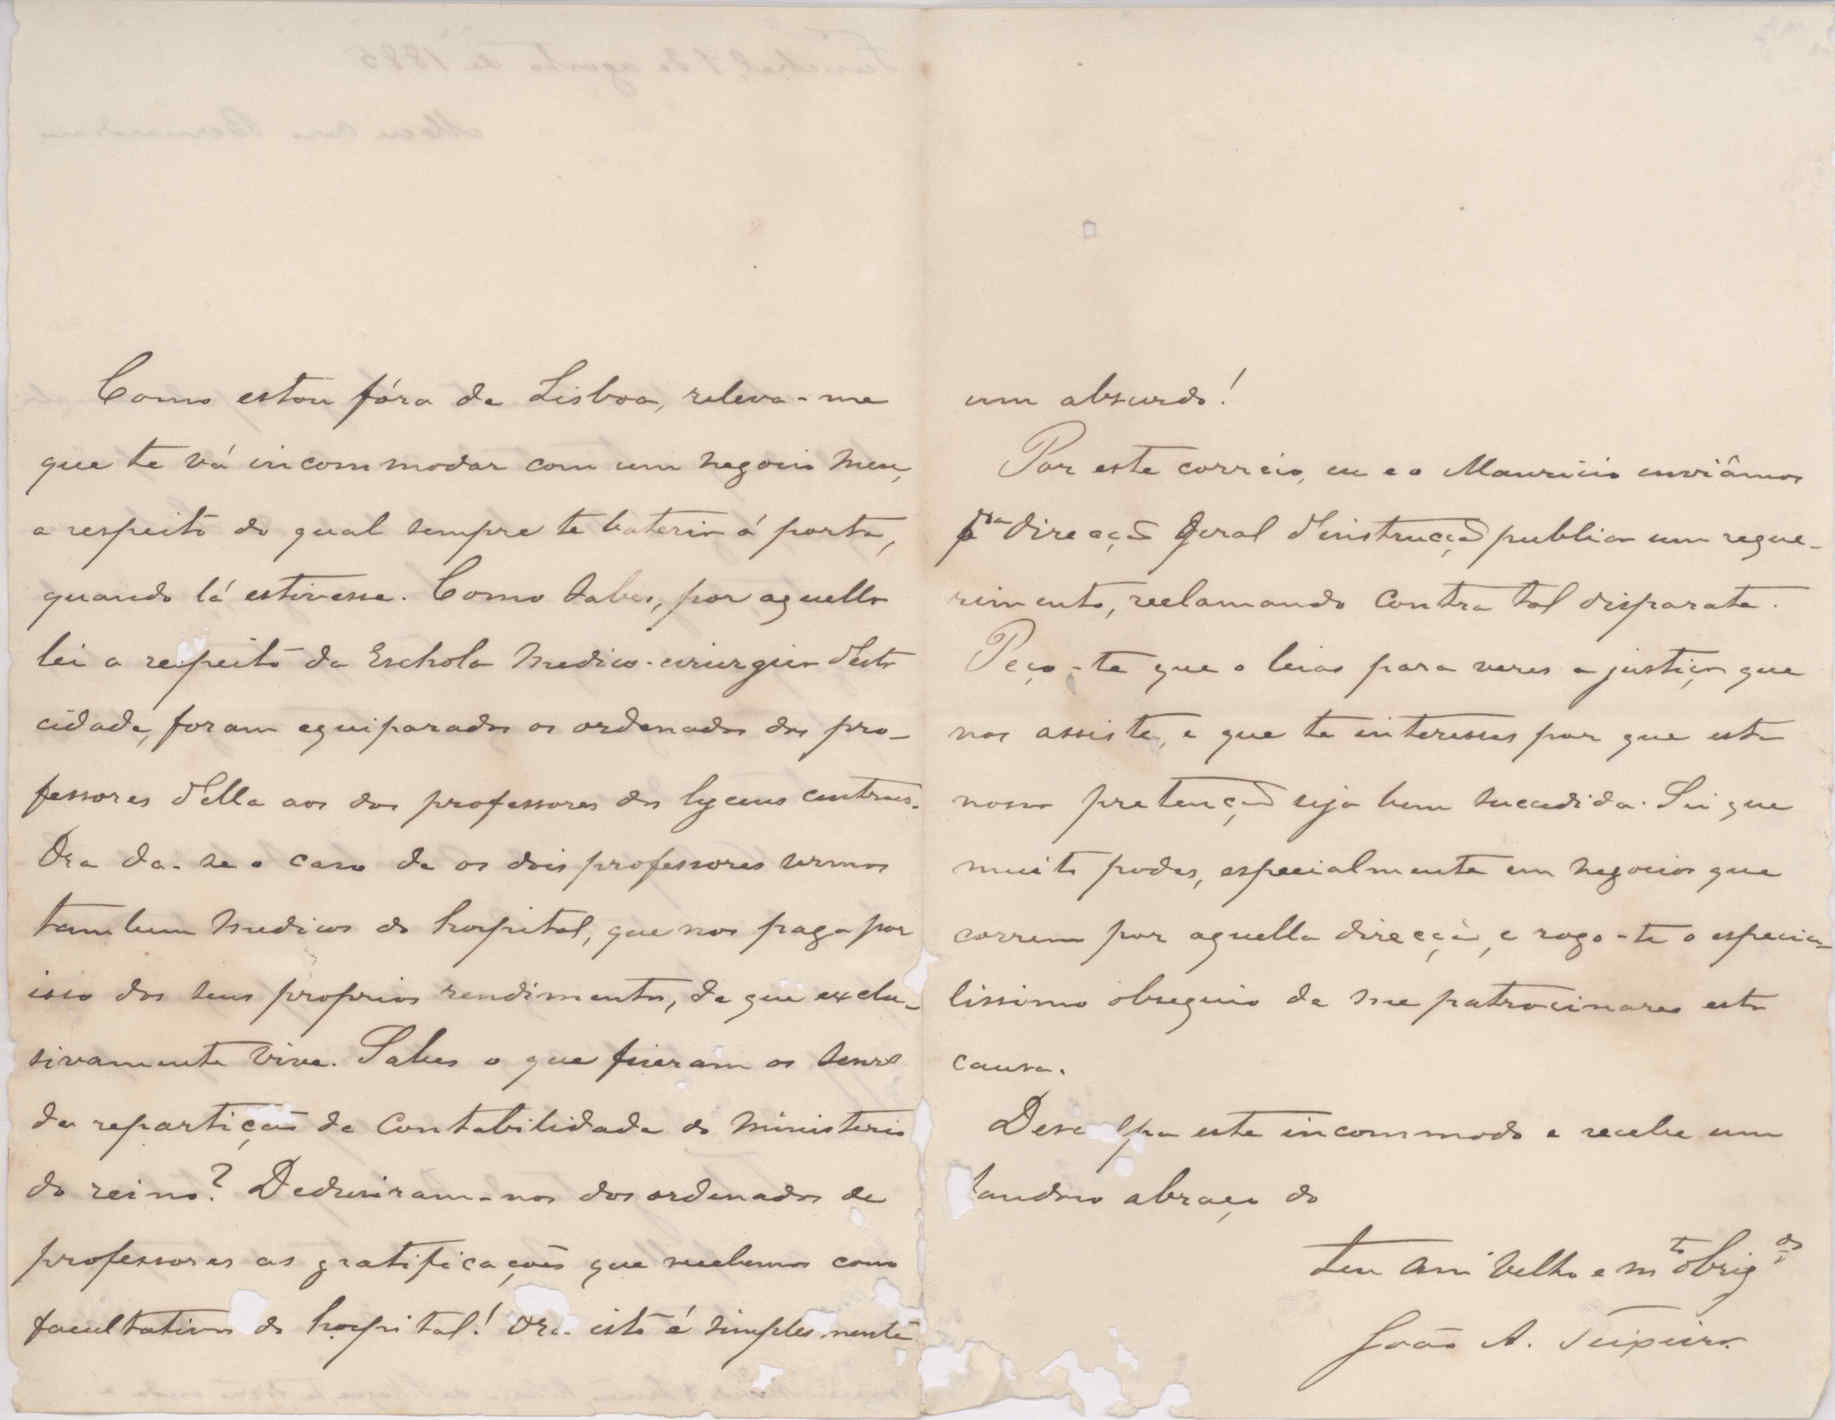 Como estou fóra de Lisboa, releva-me
que te vá incommodar com um negocio meu,
a respeito do qual sempre te bateria á porta,
quando lá estivesse. Como sabes, por aquella
lei a respeito da Eschola medico-cirurgica d'esta
cidade, foram equiparados os ordenados dos pro-
fessores d'ella aos dos professores dos lyceus centraes.
Ora da-se o caso de os dois professores sermos
tambem medicos do hospital, que nos paga por
isso dos seus proprios rendimentos, de que exclu-
sivamente vive. Sabes o que fizeram os senres
da repartição de contabilidade do ministerio
do reino? Deduziram-nos dos ordenados de
professores as gratificações que recebemos como
facultativos do hospital! Ora isto é simplesmente
um absurdo!
Por este correio, eu e o Mauricio enviâmos
pa direcção geral d'instrucção publica um reque-
rimento, reclamando contra tal disparate.
Peço-te que o leias para veres a justiça que
nos assiste, e que te interesses por que esta
nossa pretenção seja bem succedida. Sei que
muito podes, especialmente em negocios que
correm por aquella direcção, e rogo-te o especia-
lissimo obsequio de me patrocinares esta
causa.
Desculpa este incommodo e recebe um
saudoso abraço do
teu am.º velho e mto obrigdo
João A. Teixeira
Funchal 7 de agosto de 1885